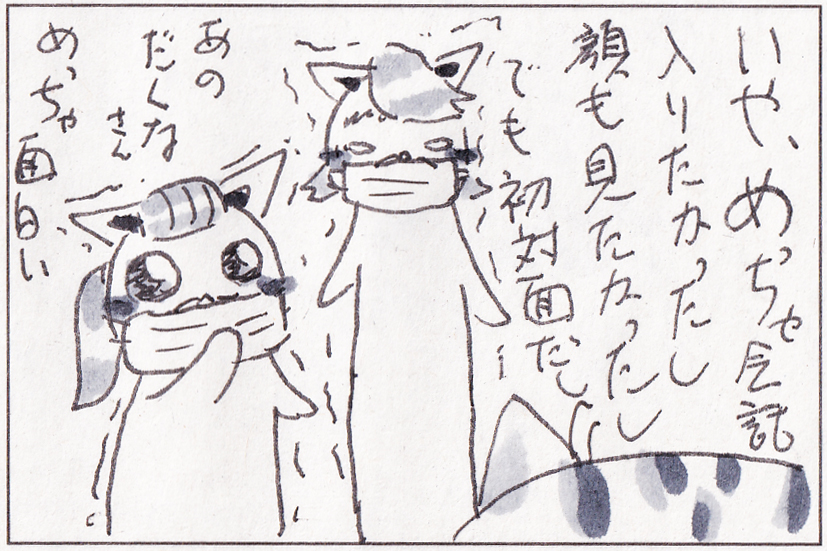 いや、めっちゃ会話
入りたかったし
顔も見たかったし
でも初対面だし
あの
だんな
さん
めっちゃ面白い